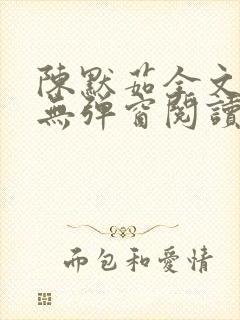 陳默茹全文
無彈窗閱讀
而包和愛情